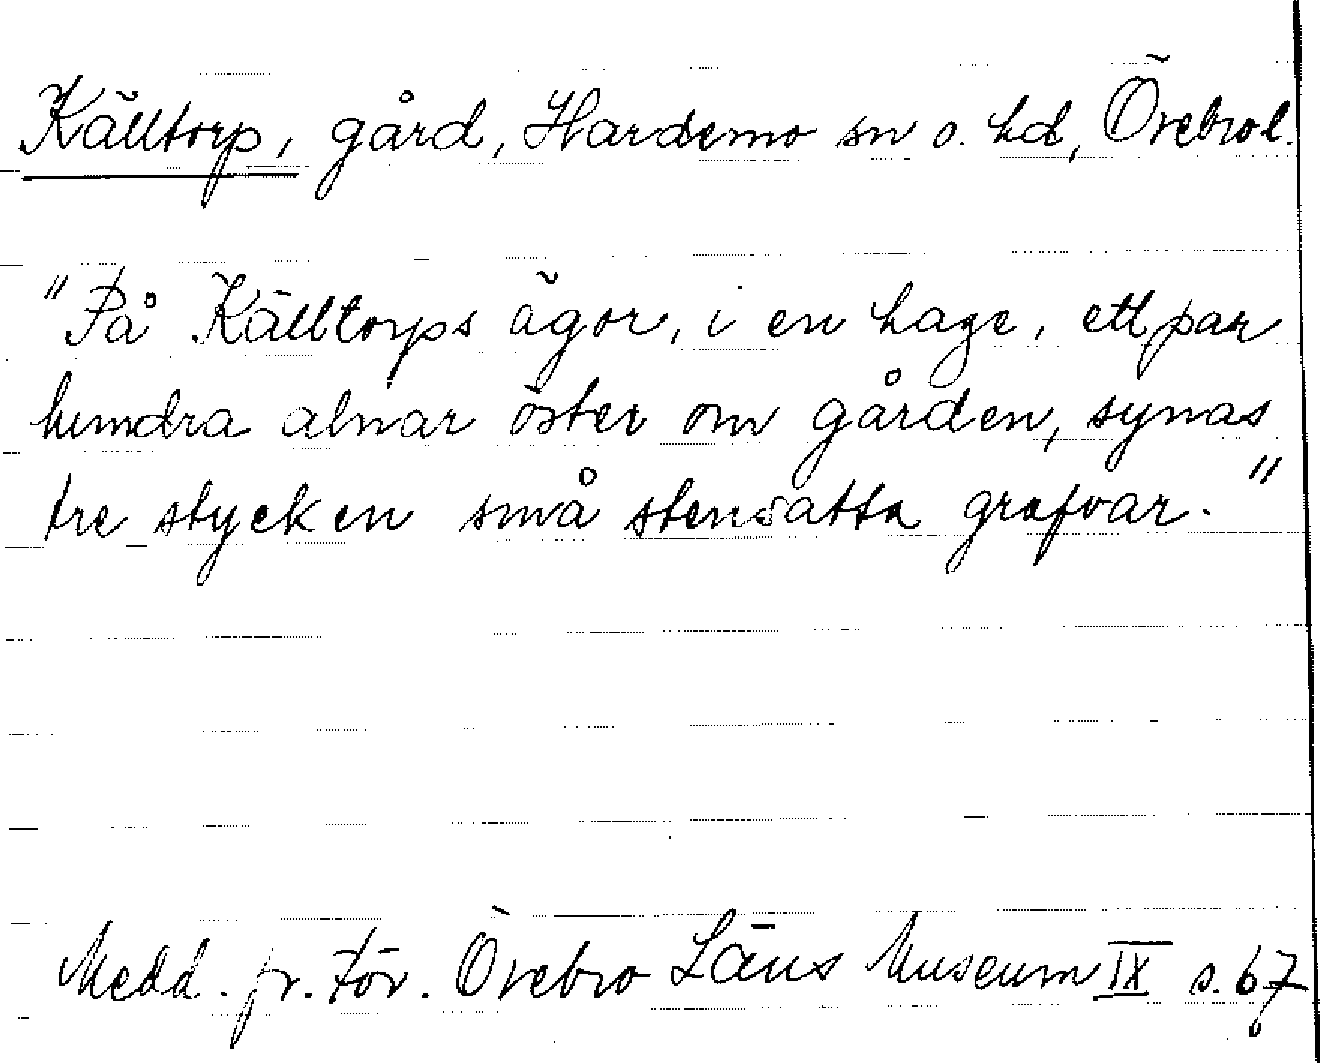 Källtorp, gård, Hardemo sn o. hd, Örebro l.
"På Källtorps ägor, i en hage, ett par
hundra alnar öster om gården, synas
tre stycken små stensatta grafvar."
Medd. fr. För. Örebro Läns Museum IX s. 67